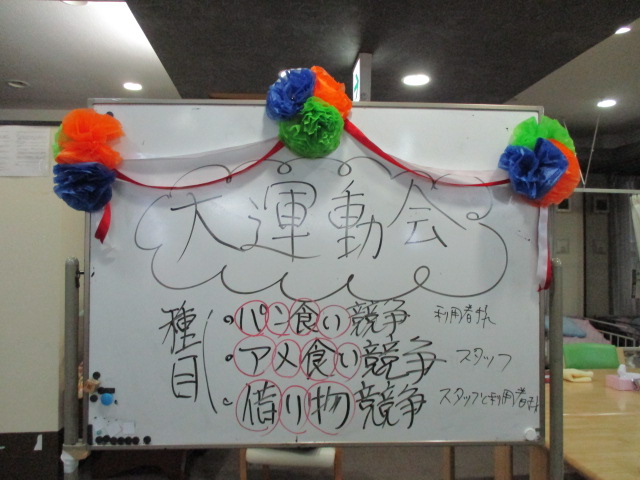 大運動会
種目
・パン食い競争 利用者様
・アメ食い競争 スタッフ
・借り物競争 スタッフと利用者様